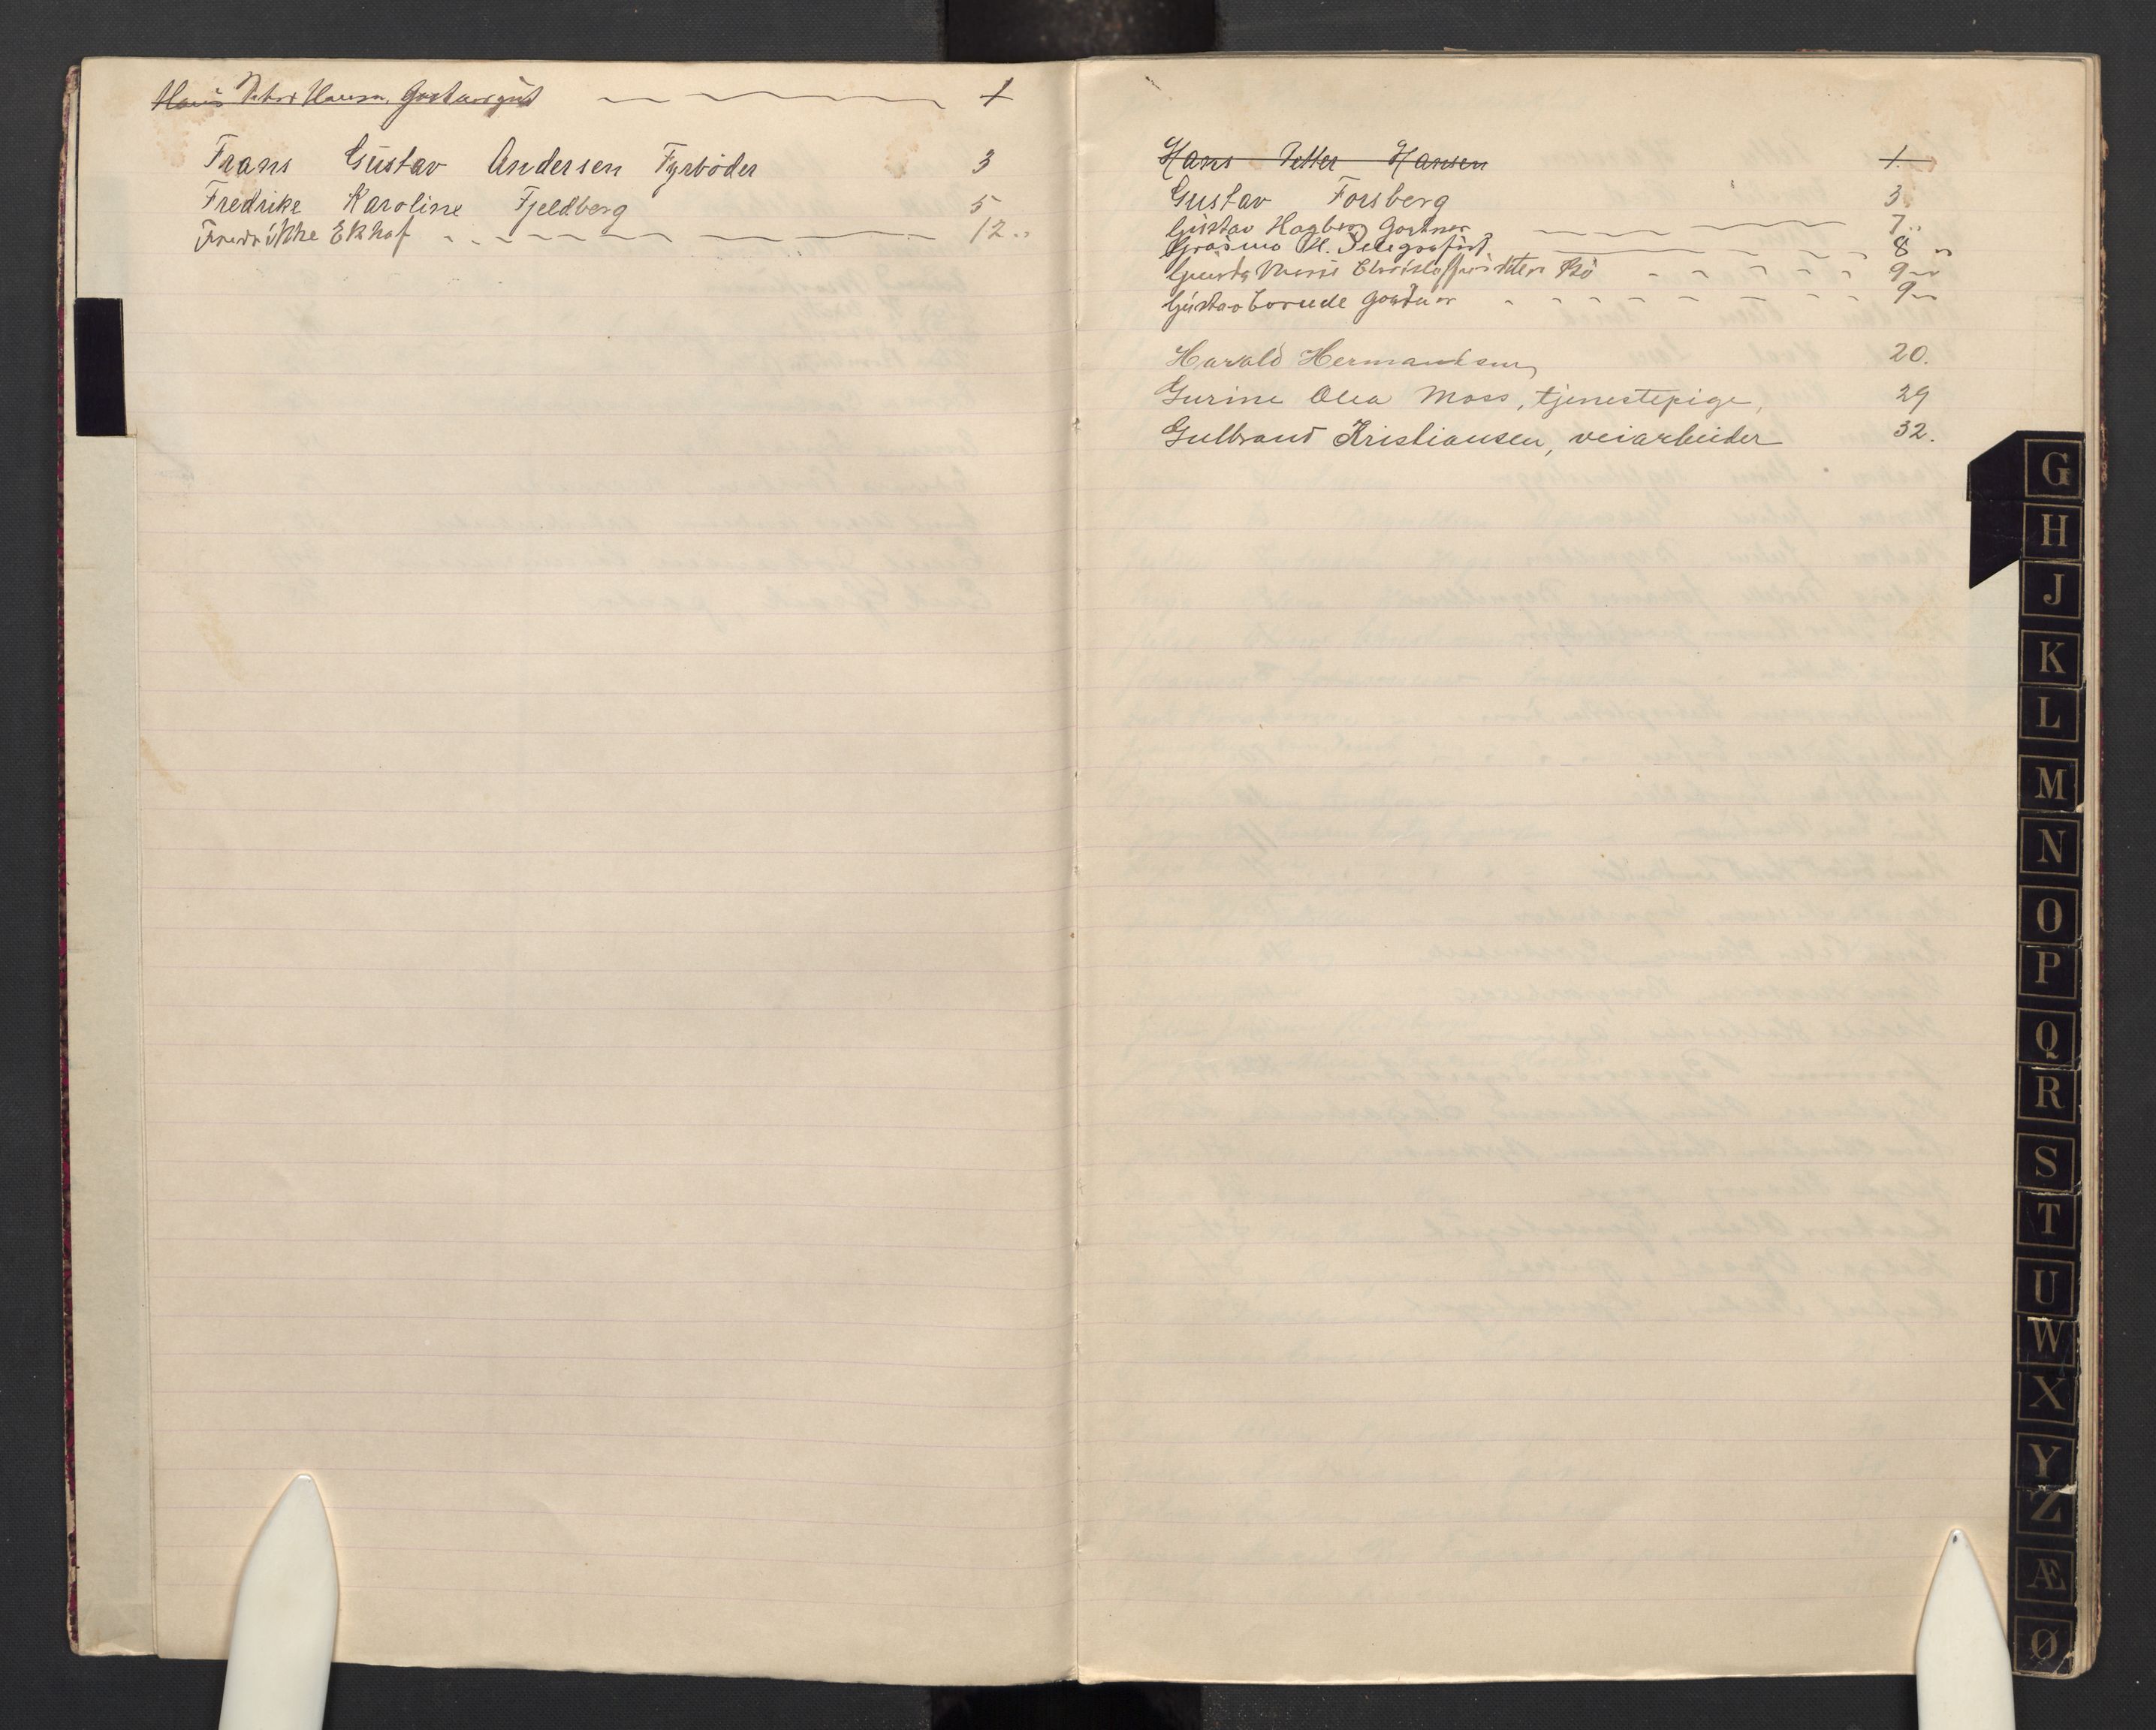 Hans Petter Hansen, Gartnergut 1
Frans Gustav Andersen Fyrbøder 3
Fredrike Karoline Fjeldberg 5
Fredrikke Ekhof 12
Hans Petter Hansen 1.
Gustav Forsberg 3
Gustav Hagberg Gartner 7
M. Telegrafist 8
Marie Bø 9
Gustav Gartner 9
Harald Hermandsen 20.
Gurine Olea Moss, tjenestepige, 29
Gulbrand Kristiansen, veiarbeider 32.
G
H
J
K
L
M
N
O
P
Q
R
S
T
U
W
X
Y
Z
Æ
Ø